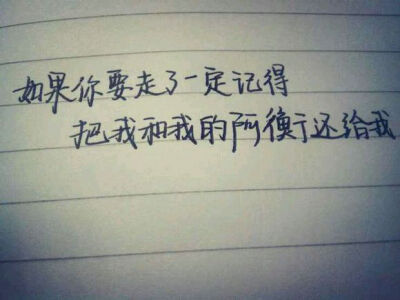 如果你要走了一定记得
把我和我的阿衡还给我